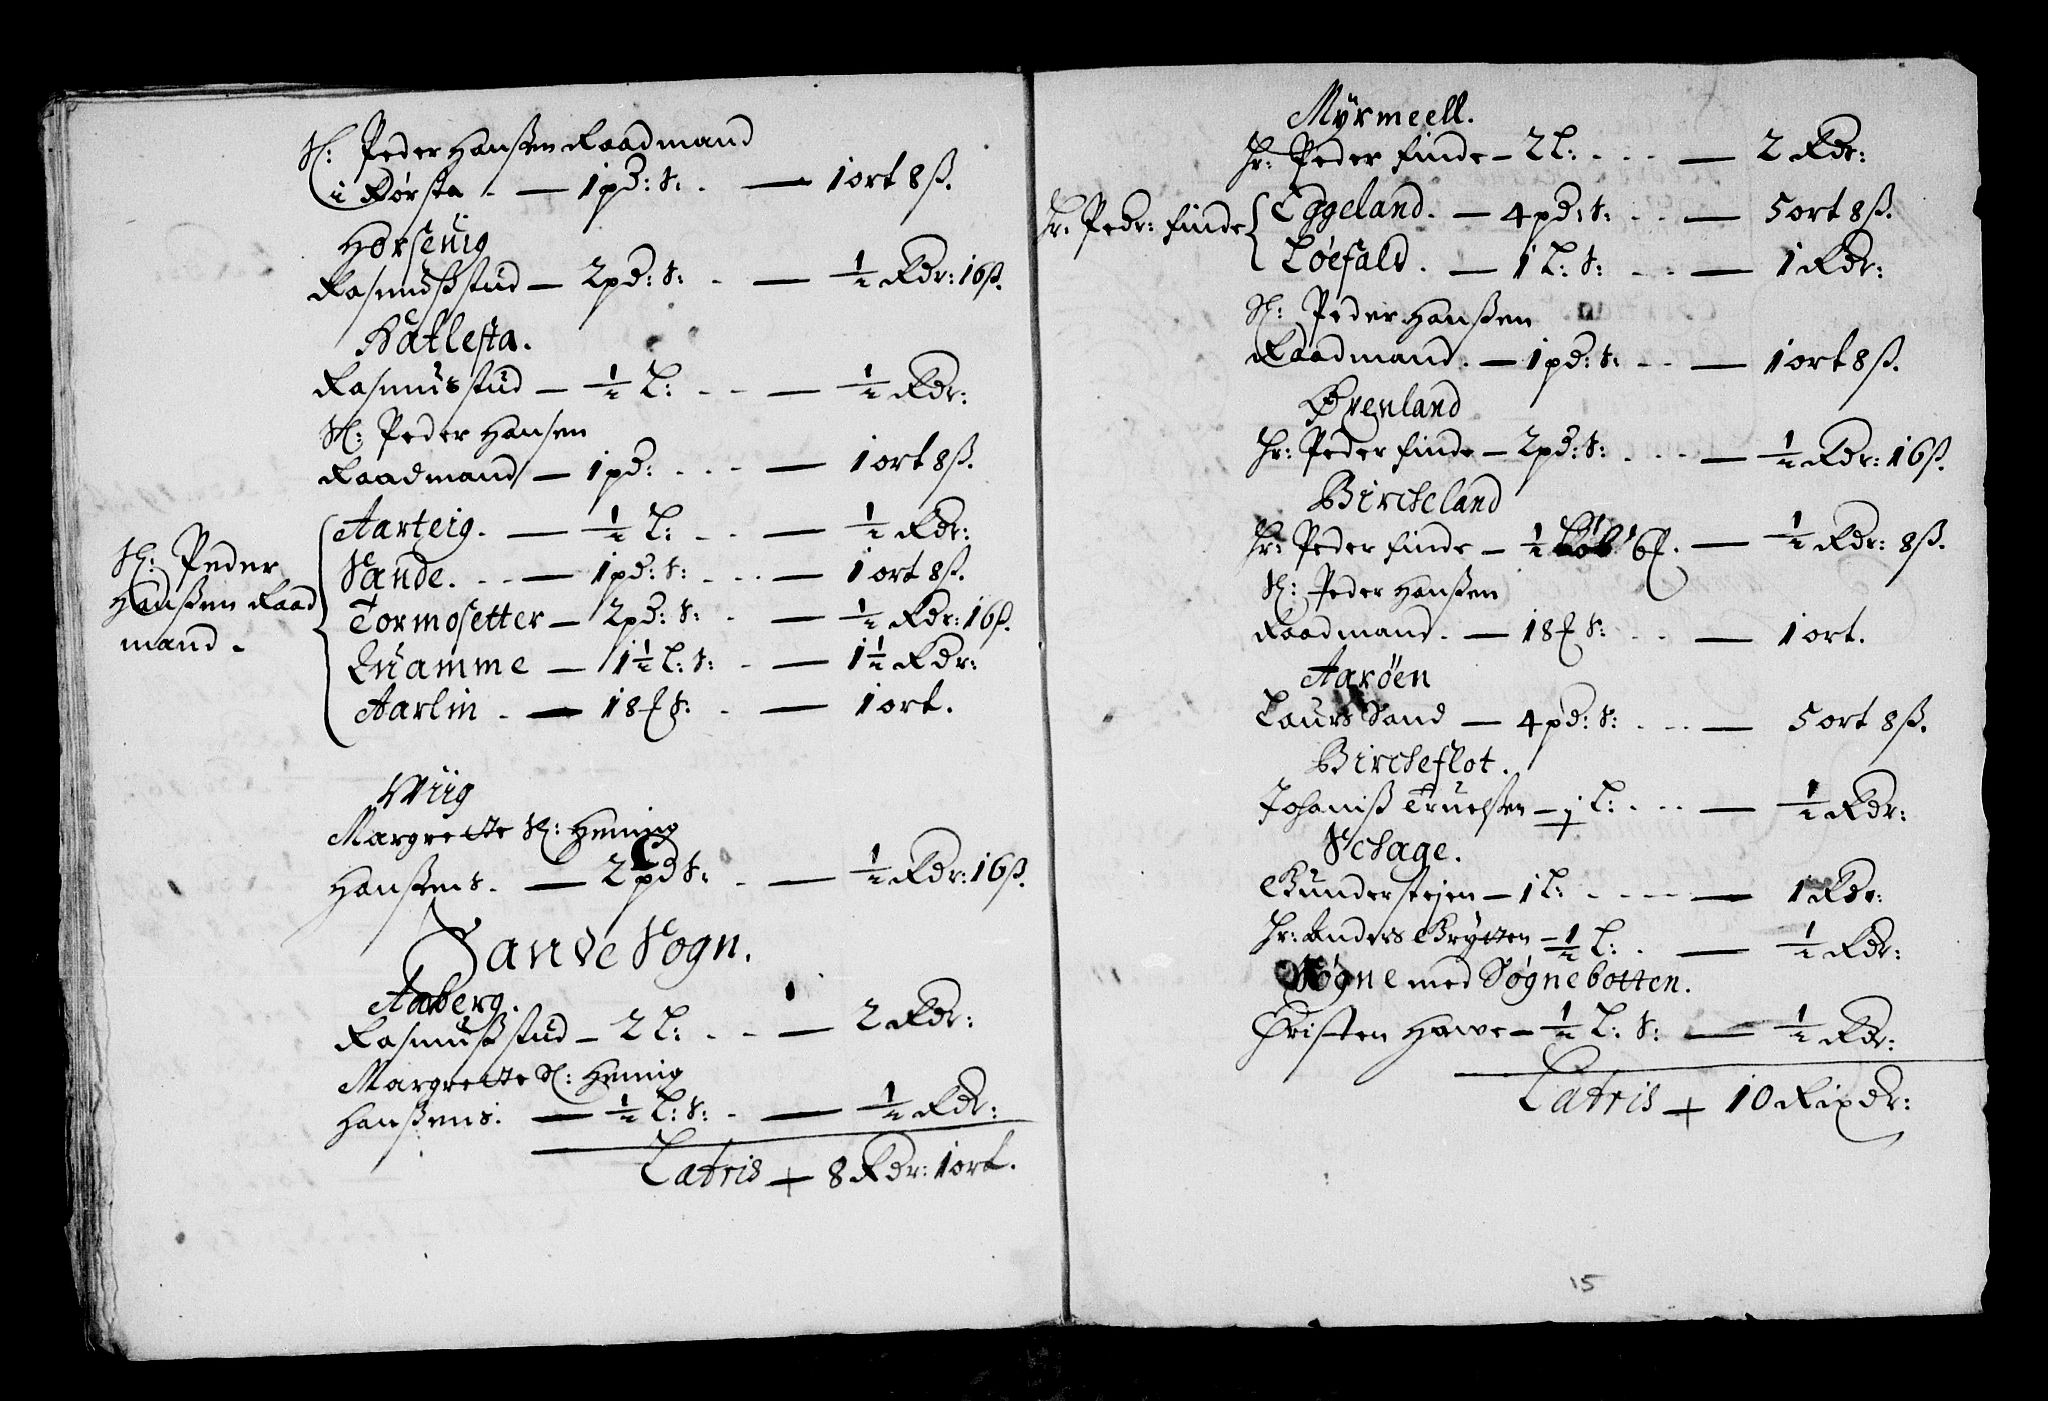 Sl: Peder Hanßen Raadmand
i Rørsta . — 1 pd: S: . — 1 ort 8 ß.
Horseuig
Rasmuß stud — 2 pd: S: . — ½ Rdr: 16 ß.
Hatlesta.
Rasmus stud — ½ L: . - - — ½ Rdr:
Sl: Peder Hansen
Raadmand — 1 pd: . - - — 1 ort 8 ß.
Sl: Peder
Hanßen Raad
mand.
Aarteig. — ½ L: . - - — ½ Rdr:
Sande. - - — 1 pd: S: - - - — 1 ort 8 ß.
Tormosetter — 2 pd: S: - — ½ Rdr: 16 ß.
Quamme — 1½ L: S: - — 1½ Rdr:
Aarlin . — 18 S: . — 1 ort.
Wiig
Margrette Sl: Hening
Hanßens. — 2 pd S: - — ½ Rdr: 16 ß.
Sande Sogn.
Aaberg.
Rasmuß stud — 2 L: . - - — 2 Rdr:
Margrette Sl: Hening
Hanßens. — ½ L: S: - — ½ Rdr:
Latris + 8 Rdr: 1 ort.
Myrmeell.
Hr: Peder finde — 2 L: . - - — 2 Rdr:
Hr: Pedr: finde
Eggeland. — 4 pd: S: - - — 5 ort 8 ß.
Løefald. — 1 L: S: - - — 1 Rdr:
Sl: Peder Hanßen
Raadmand. — 1 pd: S: - - — 1 ort 8 ß.
Ørenland
Hr: Peder finde — 2 pd: S: . - - — ½ Rdr: 16 ß.
Birckeland
Hr: Peder finde — ½ 6 . — ½ Rdr: 8 ß.
Sl: Peder Hanßen
Raadmand. — 18 S: - - — 1 ort.
Aarøen
Laurs Sand — 4 pd: S: . - - — 5 ort 8 ß.
Birckeflot.
Johaniß Truelßen — ½ L: . - - — ½ Rdr:
Schage.
Gunder stejen — 1 L: - - - - — 1 Rdr:
Hr: Anders Brytten — ½ L: . — ½ Rdr:
Søgne med Søgnebotten.
Christen Hawe — ½ L: S: — ½ Rdr:
Latris + 10 Rixdr:
15